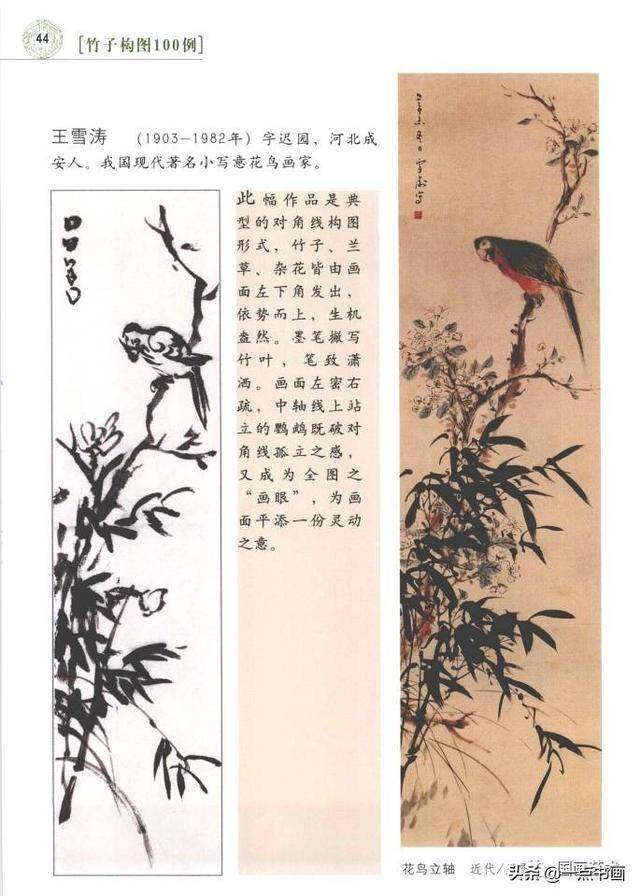 44
[竹子构图100例]
王雪涛 (1903—1982年) 字迟园，河北成
安人。我国现代著名小写意花鸟画家。
此幅作品是典
型的对角线构图
形式，竹子、兰
草、杂花皆由画
面左下角发出，
依势而上，生机
盎然。墨笔撇写
竹叶，笔致潇
洒。画面左密右
疏，中轴线上站
立的鹦鹉既破对
角线孤立之感，
又成为全图之
“画眼”，为画
面平添一份灵动
之意。
花鸟立轴 近代/
头条 @一点书画